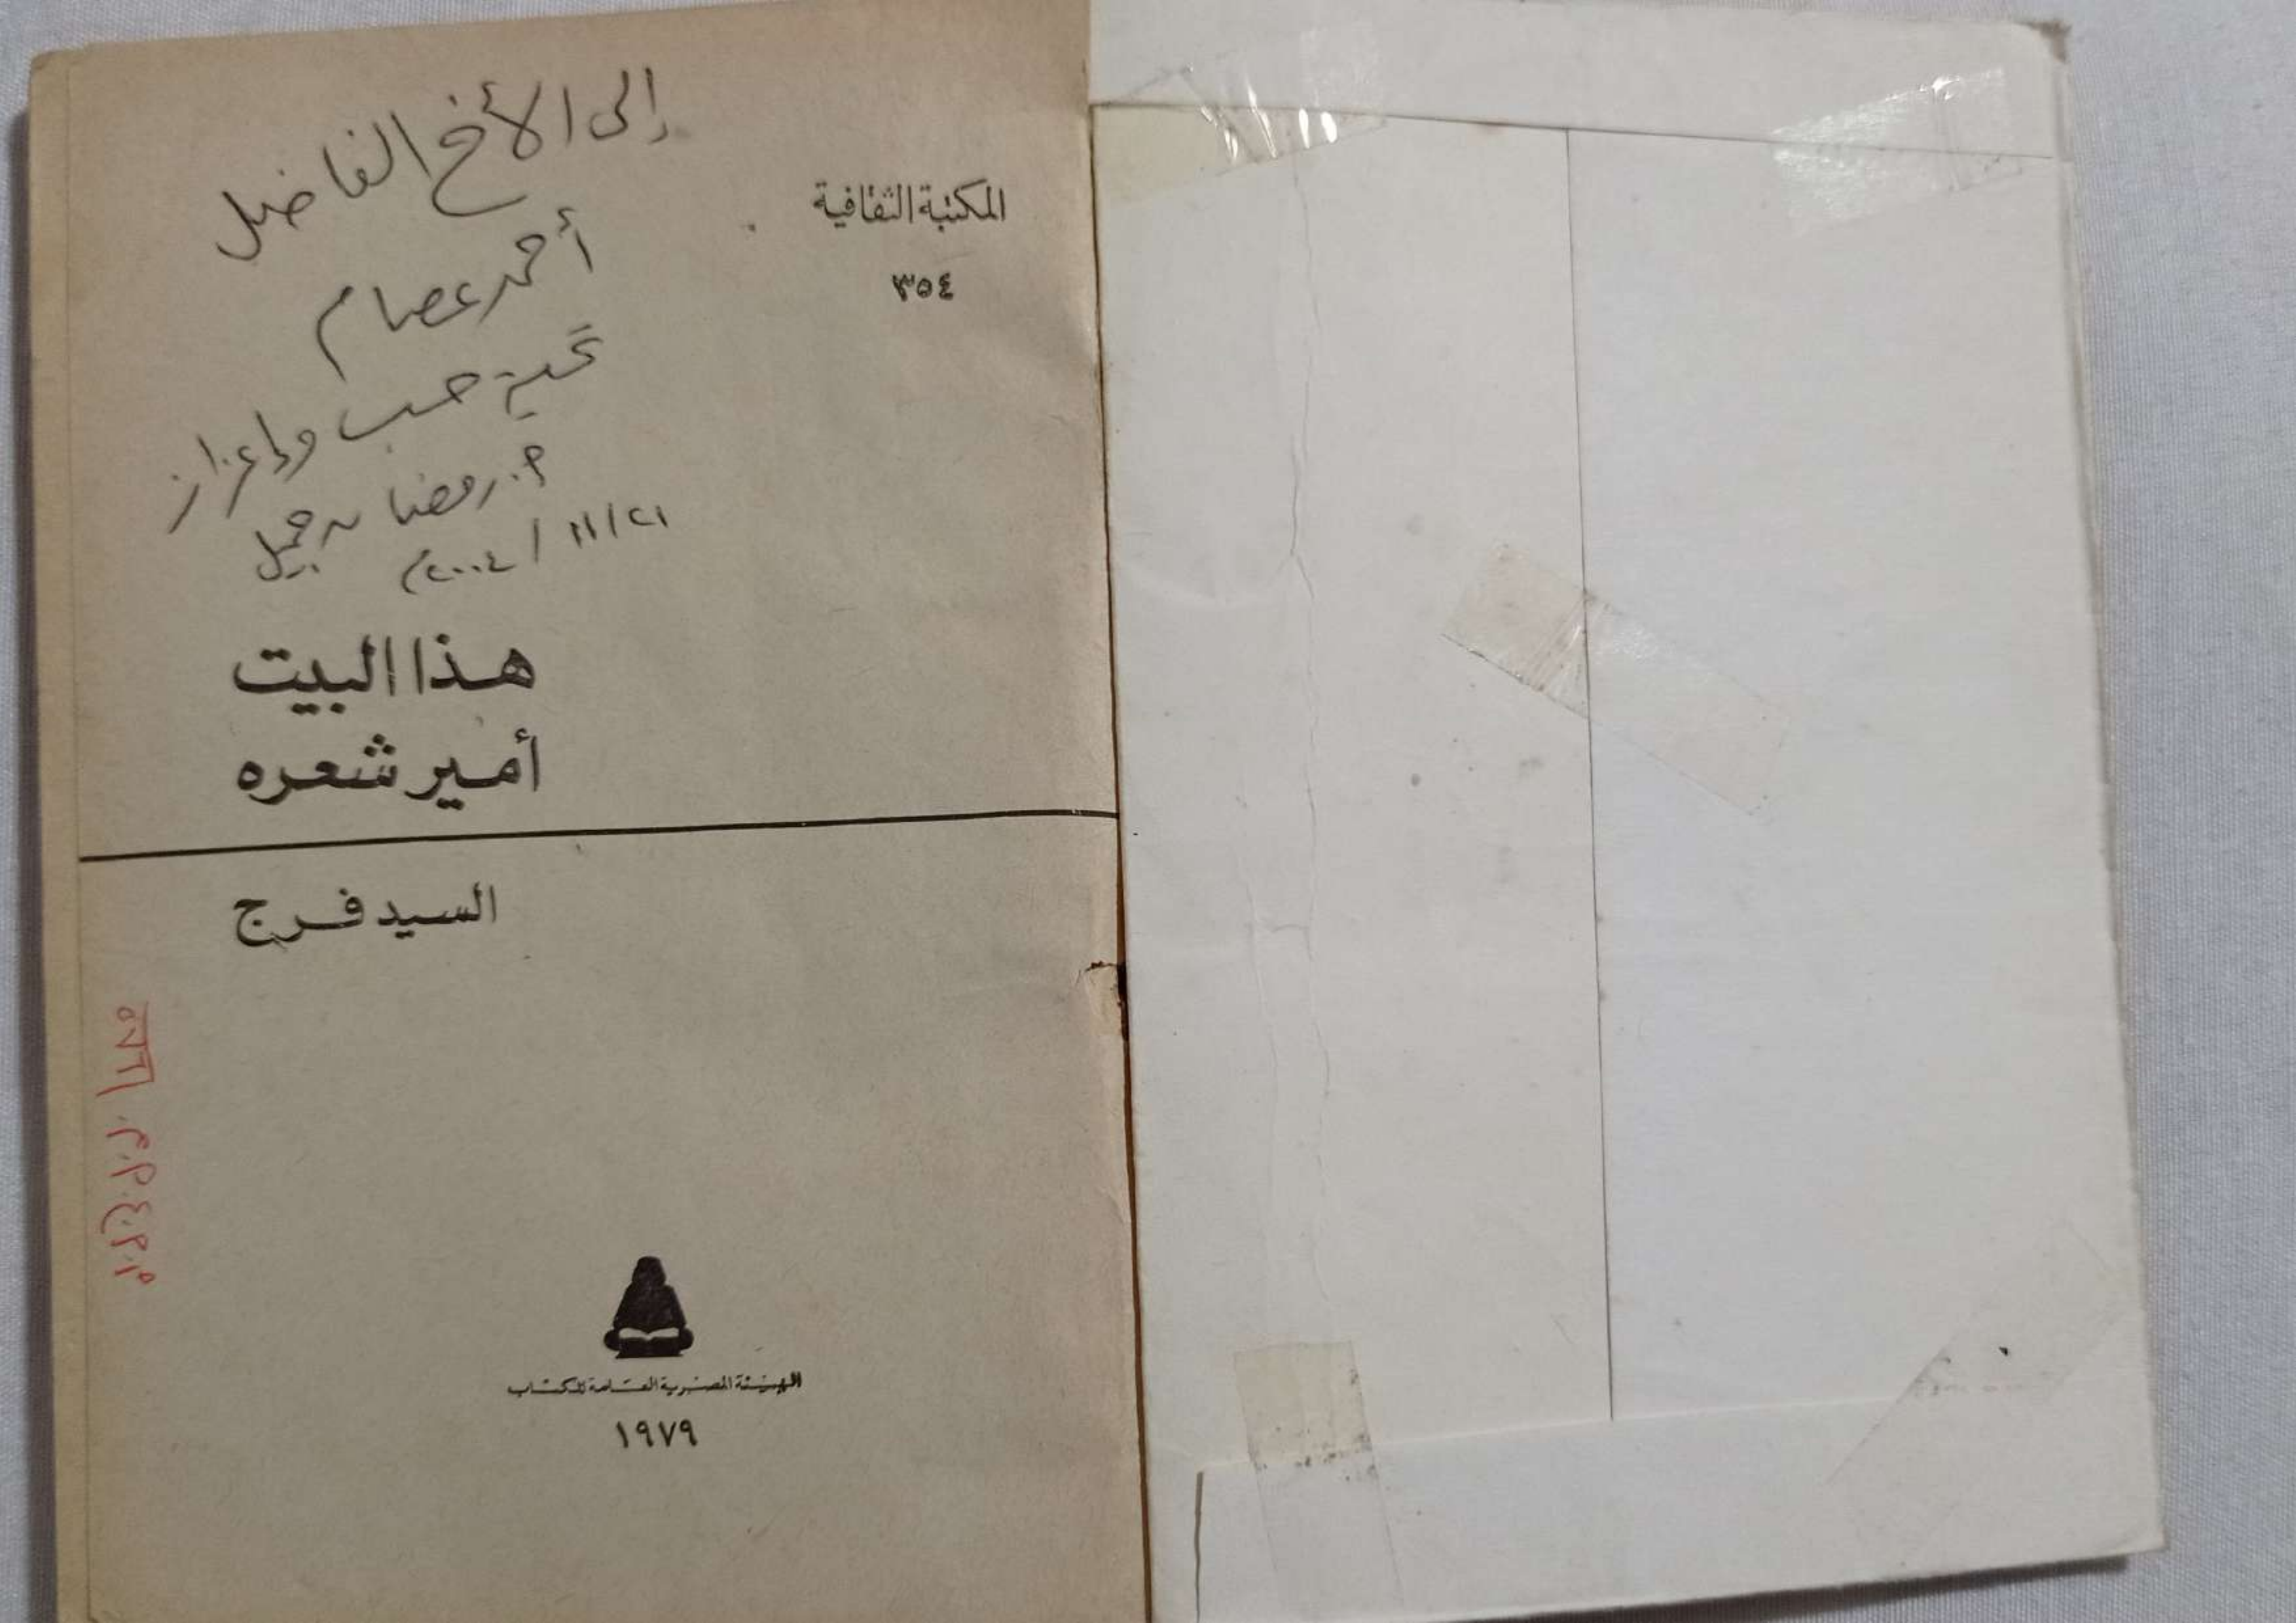 المكتبة الثقافية
٣٥٤
إلى الأخ الفاضل
أحمد عصام
تحية حب وإعزاز
م. رمضان جميل
٢١/١١/٢٠٠٤م
هذا البيت
أمير شعره
السيد فرج
الهيئة المصرية العامة للكتاب
١٩٧٩